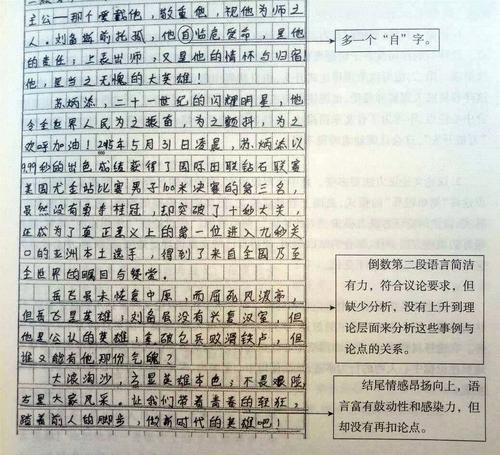 主公——那个爱戴他，敬重他，视他为师之
人。刘备临前托孤，他自临危受命，是他
的责任；上表出师，又是他的情怀与归宿！
他，是当之无愧的大英雄！
苏炳添，二十一世纪的闪耀明星，他
令全世界人民为之振奋，为之颤抖，为之
欢呼加油！2015年5月31日凌晨，苏炳添以
9.99秒的出色成绩获得了国际田联钻石联赛
美国尤金站比赛男子100米决赛的第三名，
虽然没有勇夺桂冠，却突破了十秒大关，
让成为了真正意义上的第一位进入九秒关
口的亚洲本土选手，得到了来自全国乃至
全世界的瞩目与赞赏。
岳飞虽未恢复中原，而屈死风波亭，
但岳飞是英雄；刘备虽没有兴复汉室，但
他是公认的英雄；拿破仑兵败滑铁卢，但
谁又能有他那份气魄？
大浪淘沙，方显英雄本色；不畏艰险，
古里大家风采。让我们带着青春的轻狂，
踏着前人的脚步，做新时代的英雄吧！
多一个“自”字。
倒数第二段语言简洁
有力，符合议论要求，但
缺少分析，没有上升到理
论层面来分析这些事例与
论点的关系。
结尾情感昂扬向上，语
言富有鼓动性和感染力，但
却没有再扣论点。